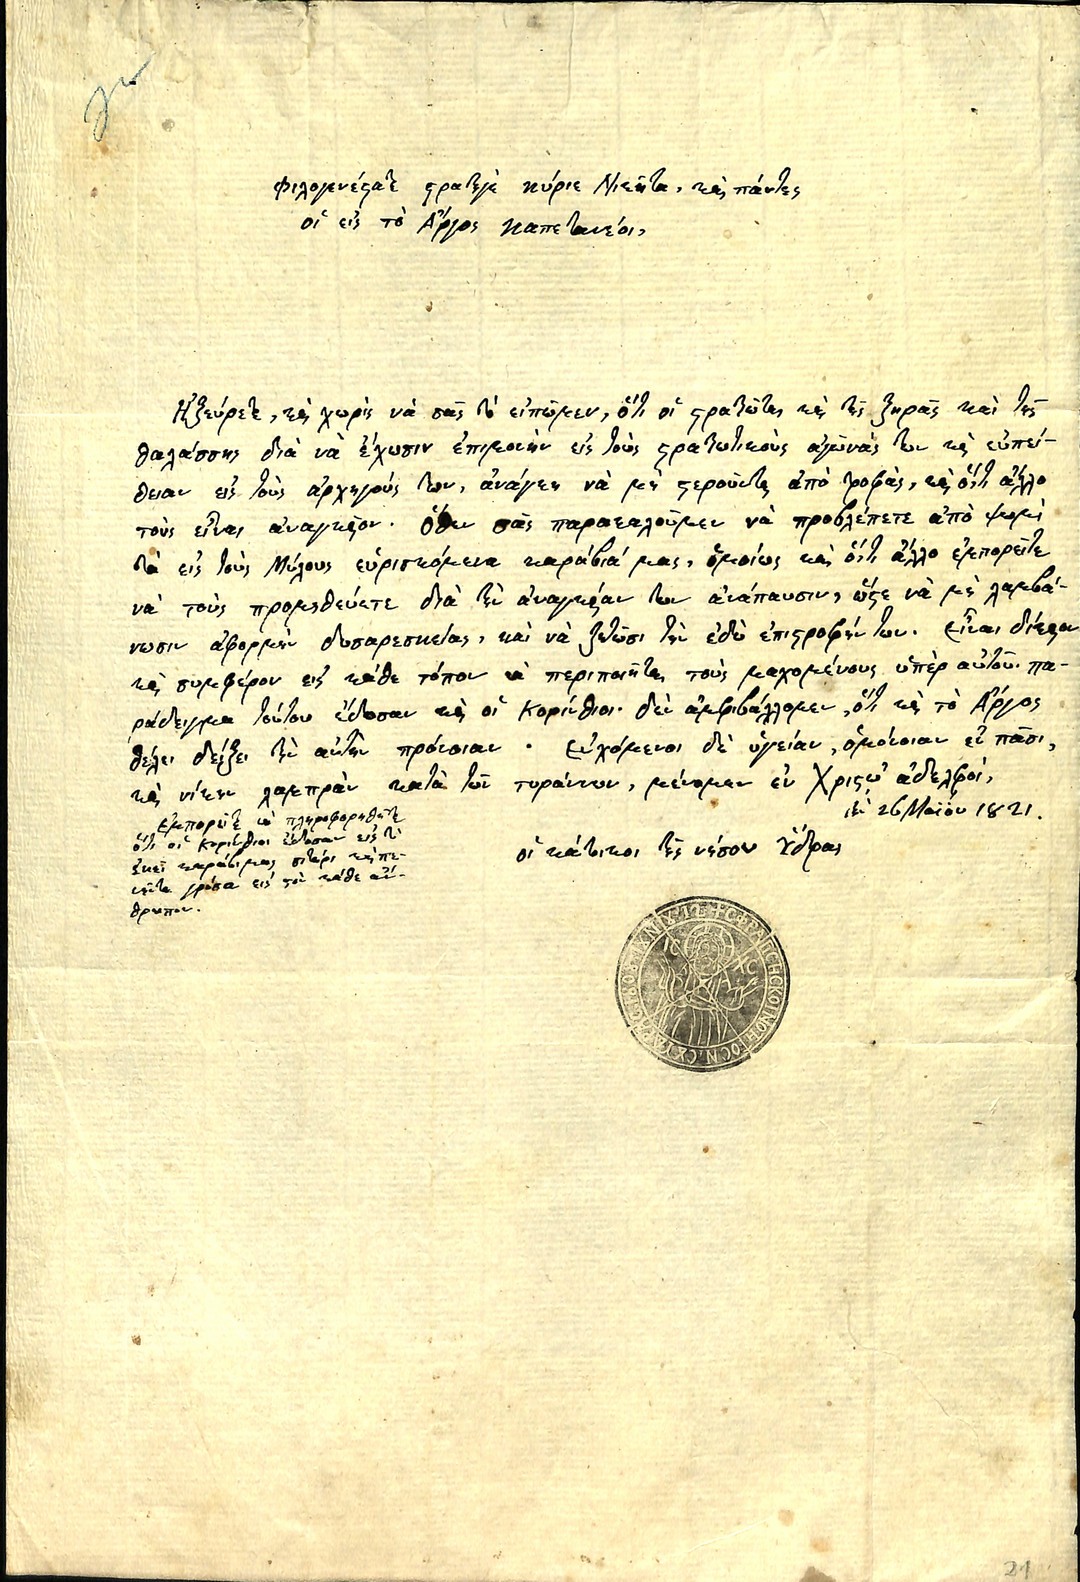 Φιλογενέστατε στρατηγὲ κύριε Νικήτα, καὶ πάντες
οἱ εἰς τὸ Ἄργος καπετανέοι,
Ἠξεύρετε, καὶ χωρὶς νὰ σᾶς τὸ εἰπῶμεν, ὅτι οἱ στρατιῶται καὶ τῆς ξηρᾶς καὶ τῆς
θαλάσσης διὰ νὰ ἔχωσιν ἐπιμονὴν εἰς τοὺς στρατιωτικοὺς ἀγῶνάς των καὶ εὐπεί-
θειαν εἰς τοὺς ἀρχηγούς των, ἀνάγκη νὰ μὴ στεροῦνται ἀπὸ τροφὰς, καὶ ὅ,τι ἄλλο
τοὺς εἶναι ἀναγκαῖον. Ὅθεν σᾶς παρακαλοῦμεν νὰ προβλέπετε ἀπὸ ψωμὶ
τὰ εἰς τοὺς Μύλους εὑρισκόμενα καράβιά μας, ὁμοίως καὶ ὅ,τι ἄλλο ἐμπορεῖτε
νὰ τοὺς προμηθεύετε διὰ τὴν ἀναγκαίαν των ἀνάπαυσιν, ὥστε νὰ μὴ λαμβά-
νωσιν ἀφορμὴν δυσαρεσκείας, καὶ νὰ ζητῶσι τὴν ἐδῶ ἐπιστροφήν των. Εἶναι δίκαιον
καὶ συμφέρον εἰς κάθε τόπον νὰ περιποιῆται τοὺς μαχομένους ὑπὲρ αὐτοῦ· πα-
ράδειγμα τούτου ἔδωσαν καὶ οἱ Κορίνθιοι· δὲν ἀμφιβάλλομεν, ὅτι καὶ τὸ Ἄργος
θέλει δείξει τὴν αὐτὴν πρόνοιαν. Εὐχόμενοι δὲ ὑγείαν, ὁμόνοιαν ἐν πᾶσι,
καὶ νίκην λαμπρὰν κατὰ τῶν τυράννων, μένομεν ἐν Χριστῷ ἀδελφοί,
τῇ 26 Μαΐου 1821.
οἱ κάτοικοι τῆς νήσου Ὕδρας
Ἐμπορεῖτε νὰ πληροφορηθῆτε
ὅτι οἱ Κορίνθιοι ἔδωσαν εἰς τὰ
ἐκεῖ καράβιμας σιτάρι καὶ πε-
νῆντα γρόσια εἰς τὸν κάθε ἄν-
θρωπον.
ΙC ΧC
21